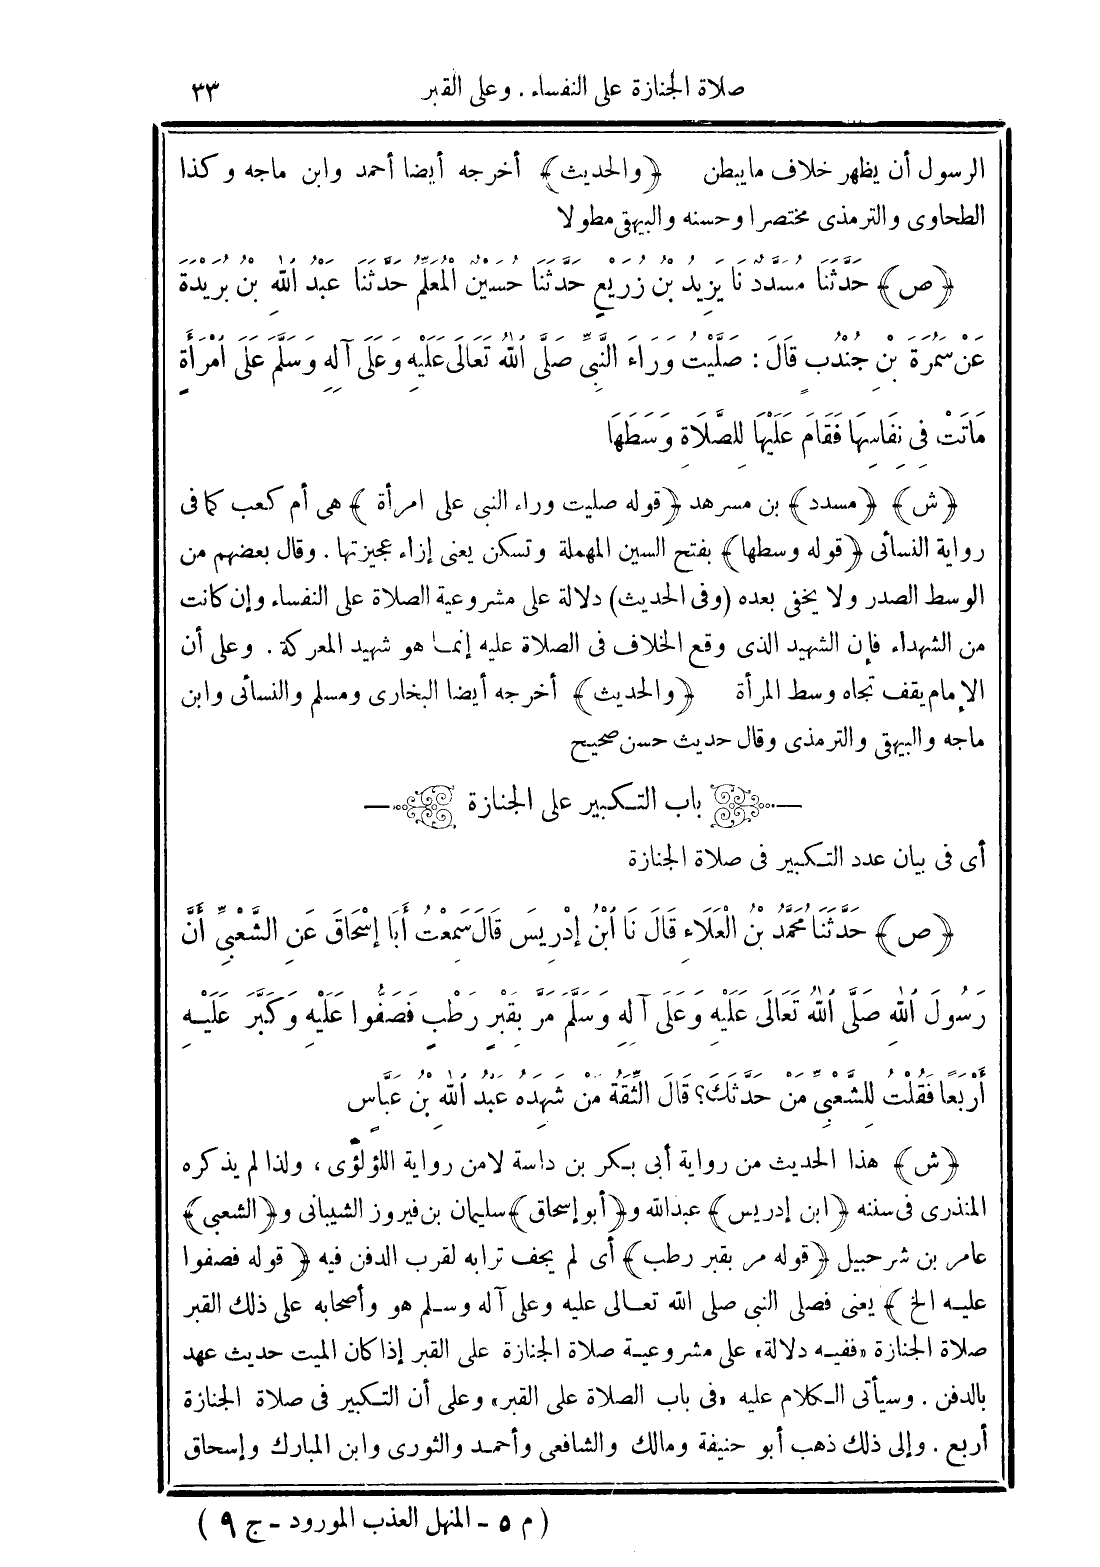 صلاة الجنازة على النفساء . وعلى القبر ٣٣
الرسول أن يظهر خلاف مايبطن ﴿والحديث﴾ أخرجه أيضا أحمد وابن ماجه وكذا
الطحاوى والترمذى مختصرا وحسنه والبيهقى مطولا
﴿ص﴾ حَدَّثَنَا مُسَدَّدٌ نَا يَزِيدُ بْنُ زُرَيْعٍ حَدَّثَنَا حُسَيْنٌ الْمُعَلِّمُ حَدَّثَنَا عَبْدُ اللهِ بْنُ بُرَيْدَةَ
عَنْ سَمُرَةَ بْنِ جُنْدُبٍ قَالَ : صَلَّيْتُ وَرَاءَ النَّبِيِّ صَلَّى اللهُ تَعَالَى عَلَيْهِ وَعَلَى آلِهِ وَسَلَّمَ عَلَى امْرَأَةٍ
مَاتَتْ فِى نِفَاسِهَا فَقَامَ عَلَيْهَا لِلصَّلَاةِ وَسَطَهَا
﴿ش﴾ ﴿مسدد﴾ بن مسرهد ﴿قوله صليت وراء النبى على امرأة﴾ هى أم كعب كما فى
رواية النسائى ﴿قوله وسطها﴾ بفتح السين المهملة وتسكن يعنى إزاء عجيزتها . وقال بعضهم من
الوسط الصدر ولا يخفى بعده (وفى الحديث) دلالة على مشروعية الصلاة على النفساء وإن كانت
من الشهداء فإن الشهيد الذى وقع الخلاف فى الصلاة عليه إنما هو شهيد المعركة . وعلى أن
الإمام يقف تجاه وسط المرأة ﴿والحديث﴾ أخرجه أيضا البخارى ومسلم والنسائى وابن
ماجه والبيهقى والترمذى وقال حديث حسن صحيح
باب التكبير على الجنازة
أى فى بيان عدد التكبير فى صلاة الجنازة
﴿ص﴾ حَدَّثَنَا مُحَمَّدُ بْنُ الْعَلَاءِ قَالَ نَا ابْنُ إِدْرِيسَ قَالَ سَمِعْتُ أَبَا إِسْحَاقَ عَنِ الشَّعْبِيِّ أَنَّ
رَسُولَ اللهِ صَلَّى اللهُ تَعَالَى عَلَيْهِ وَعَلَى آلِهِ وَسَلَّمَ مَرَّ بِقَبْرٍ رَطْبٍ فَصَفُّوا عَلَيْهِ وَكَبَّرَ عَلَيْهِ
أَرْبَعًا فَقُلْتُ لِلشَّعْبِيِّ مَنْ حَدَّثَكَ؟ قَالَ الثِّقَةُ مَنْ شَهِدَهُ عَبْدُ اللهِ بْنُ عَبَّاسٍ
﴿ش﴾ هذا الحديث من رواية أبى بكر بن داسة لامن رواية اللؤلؤى ، ولذا لم يذكره
المنذرى فى سننه ﴿ابن إدريس﴾ عبدالله و﴿أبو إسحاق﴾ سليمان بن فيروز الشيبانى و﴿الشعبى﴾
عامر بن شرحبيل ﴿قوله مر بقبر رطب﴾ أى لم يجف ترابه لقرب الدفن فيه ﴿قوله فصفوا
عليه الخ﴾ يعنى فصلى النبى صلى الله تعالى عليه وعلى آله وسلم هو وأصحابه على ذلك القبر
صلاة الجنازة «ففيه دلالة» على مشروعية صلاة الجنازة على القبر إذا كان الميت حديث عهد
بالدفن . وسيأتى الكلام عليه «فى باب الصلاة على القبر» وعلى أن التكبير فى صلاة الجنازة
أربع . وإلى ذلك ذهب أبو حنيفة ومالك والشافعى وأحمد والثورى وابن المبارك وإسحاق
( م ٥ - المنهل العذب المورود - ج ٩ )